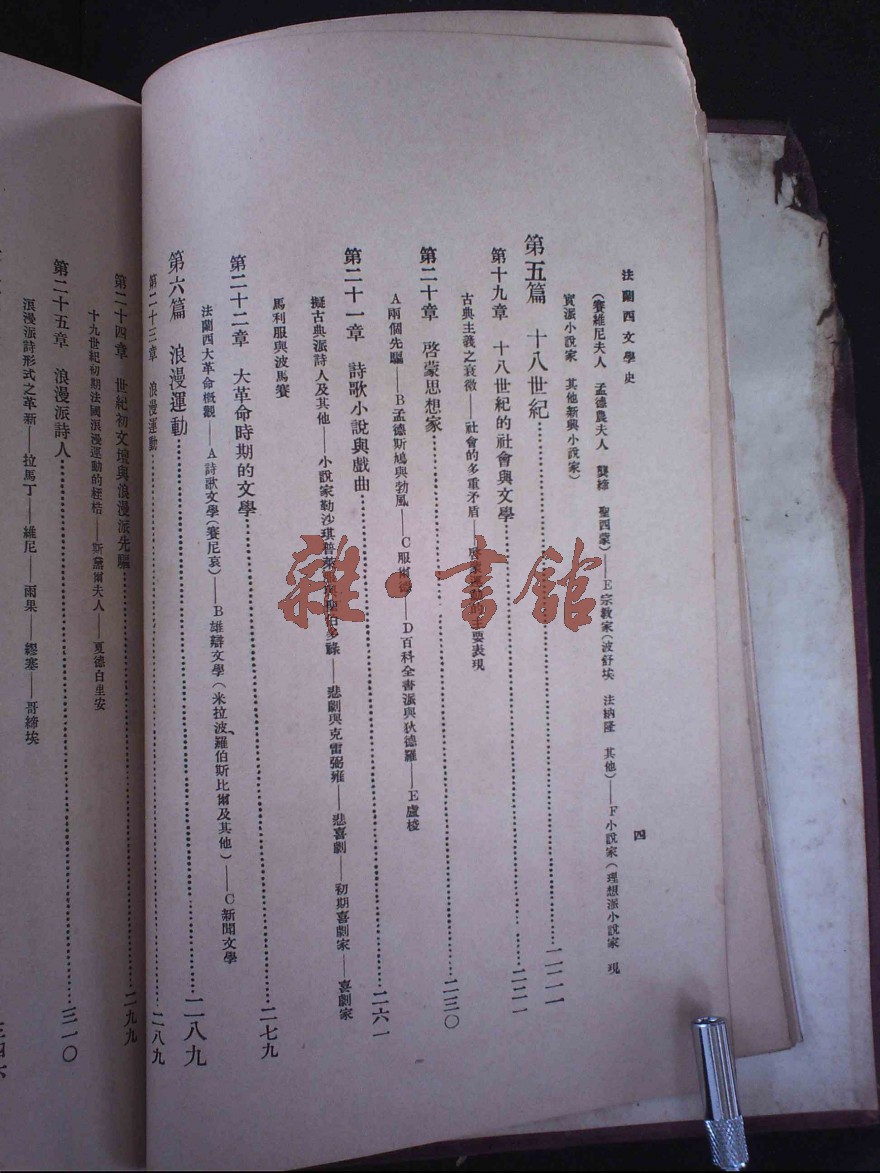 法蘭西文學史
四
（賽維尼夫人　孟德農夫人　龔縧　聖西蒙）——E宗教家（波舒埃　法納隆　其他）——F小說家（理想派小說家　現
實派小說家　其他新興小說家）
第五篇　十八世紀……二二一
第十九章　十八世紀的社會與文學……二二一
古典主義之衰微——社會的多重矛盾——啓蒙運動的主要表現
第二十章　啓蒙思想家……二三〇
A兩個先驅——B孟德斯鳩與勃風——C服爾德——D百科全書派與狄德羅——E盧梭
第二十一章　詩歌小說與戲曲……二六一
擬古典派詩人及其他——小說家勒沙琪普萊服與聖伯多祿——悲劇與克雷弼雍——悲喜劇——初期喜劇家——喜劇家
馬利服與波馬賽
第二十二章　大革命時期的文學……二七九
法蘭西大革命概觀——A詩歌文學（賽尼哀）——B雄辯文學（米拉波、羅伯斯比爾及其他）——C新聞文學
第六篇　浪漫運動……二八九
第二十三章　浪漫運動……二八九
第二十四章　世紀初文壇與浪漫派先驅……二九九
十九世紀初期法國浪漫運動的桎梏——斯黛爾夫人——夏德白里安
第二十五章　浪漫派詩人……三一〇
浪漫派詩形式之革新——拉馬丁——維尼——雨果——繆塞——哥締埃
雜·書舘